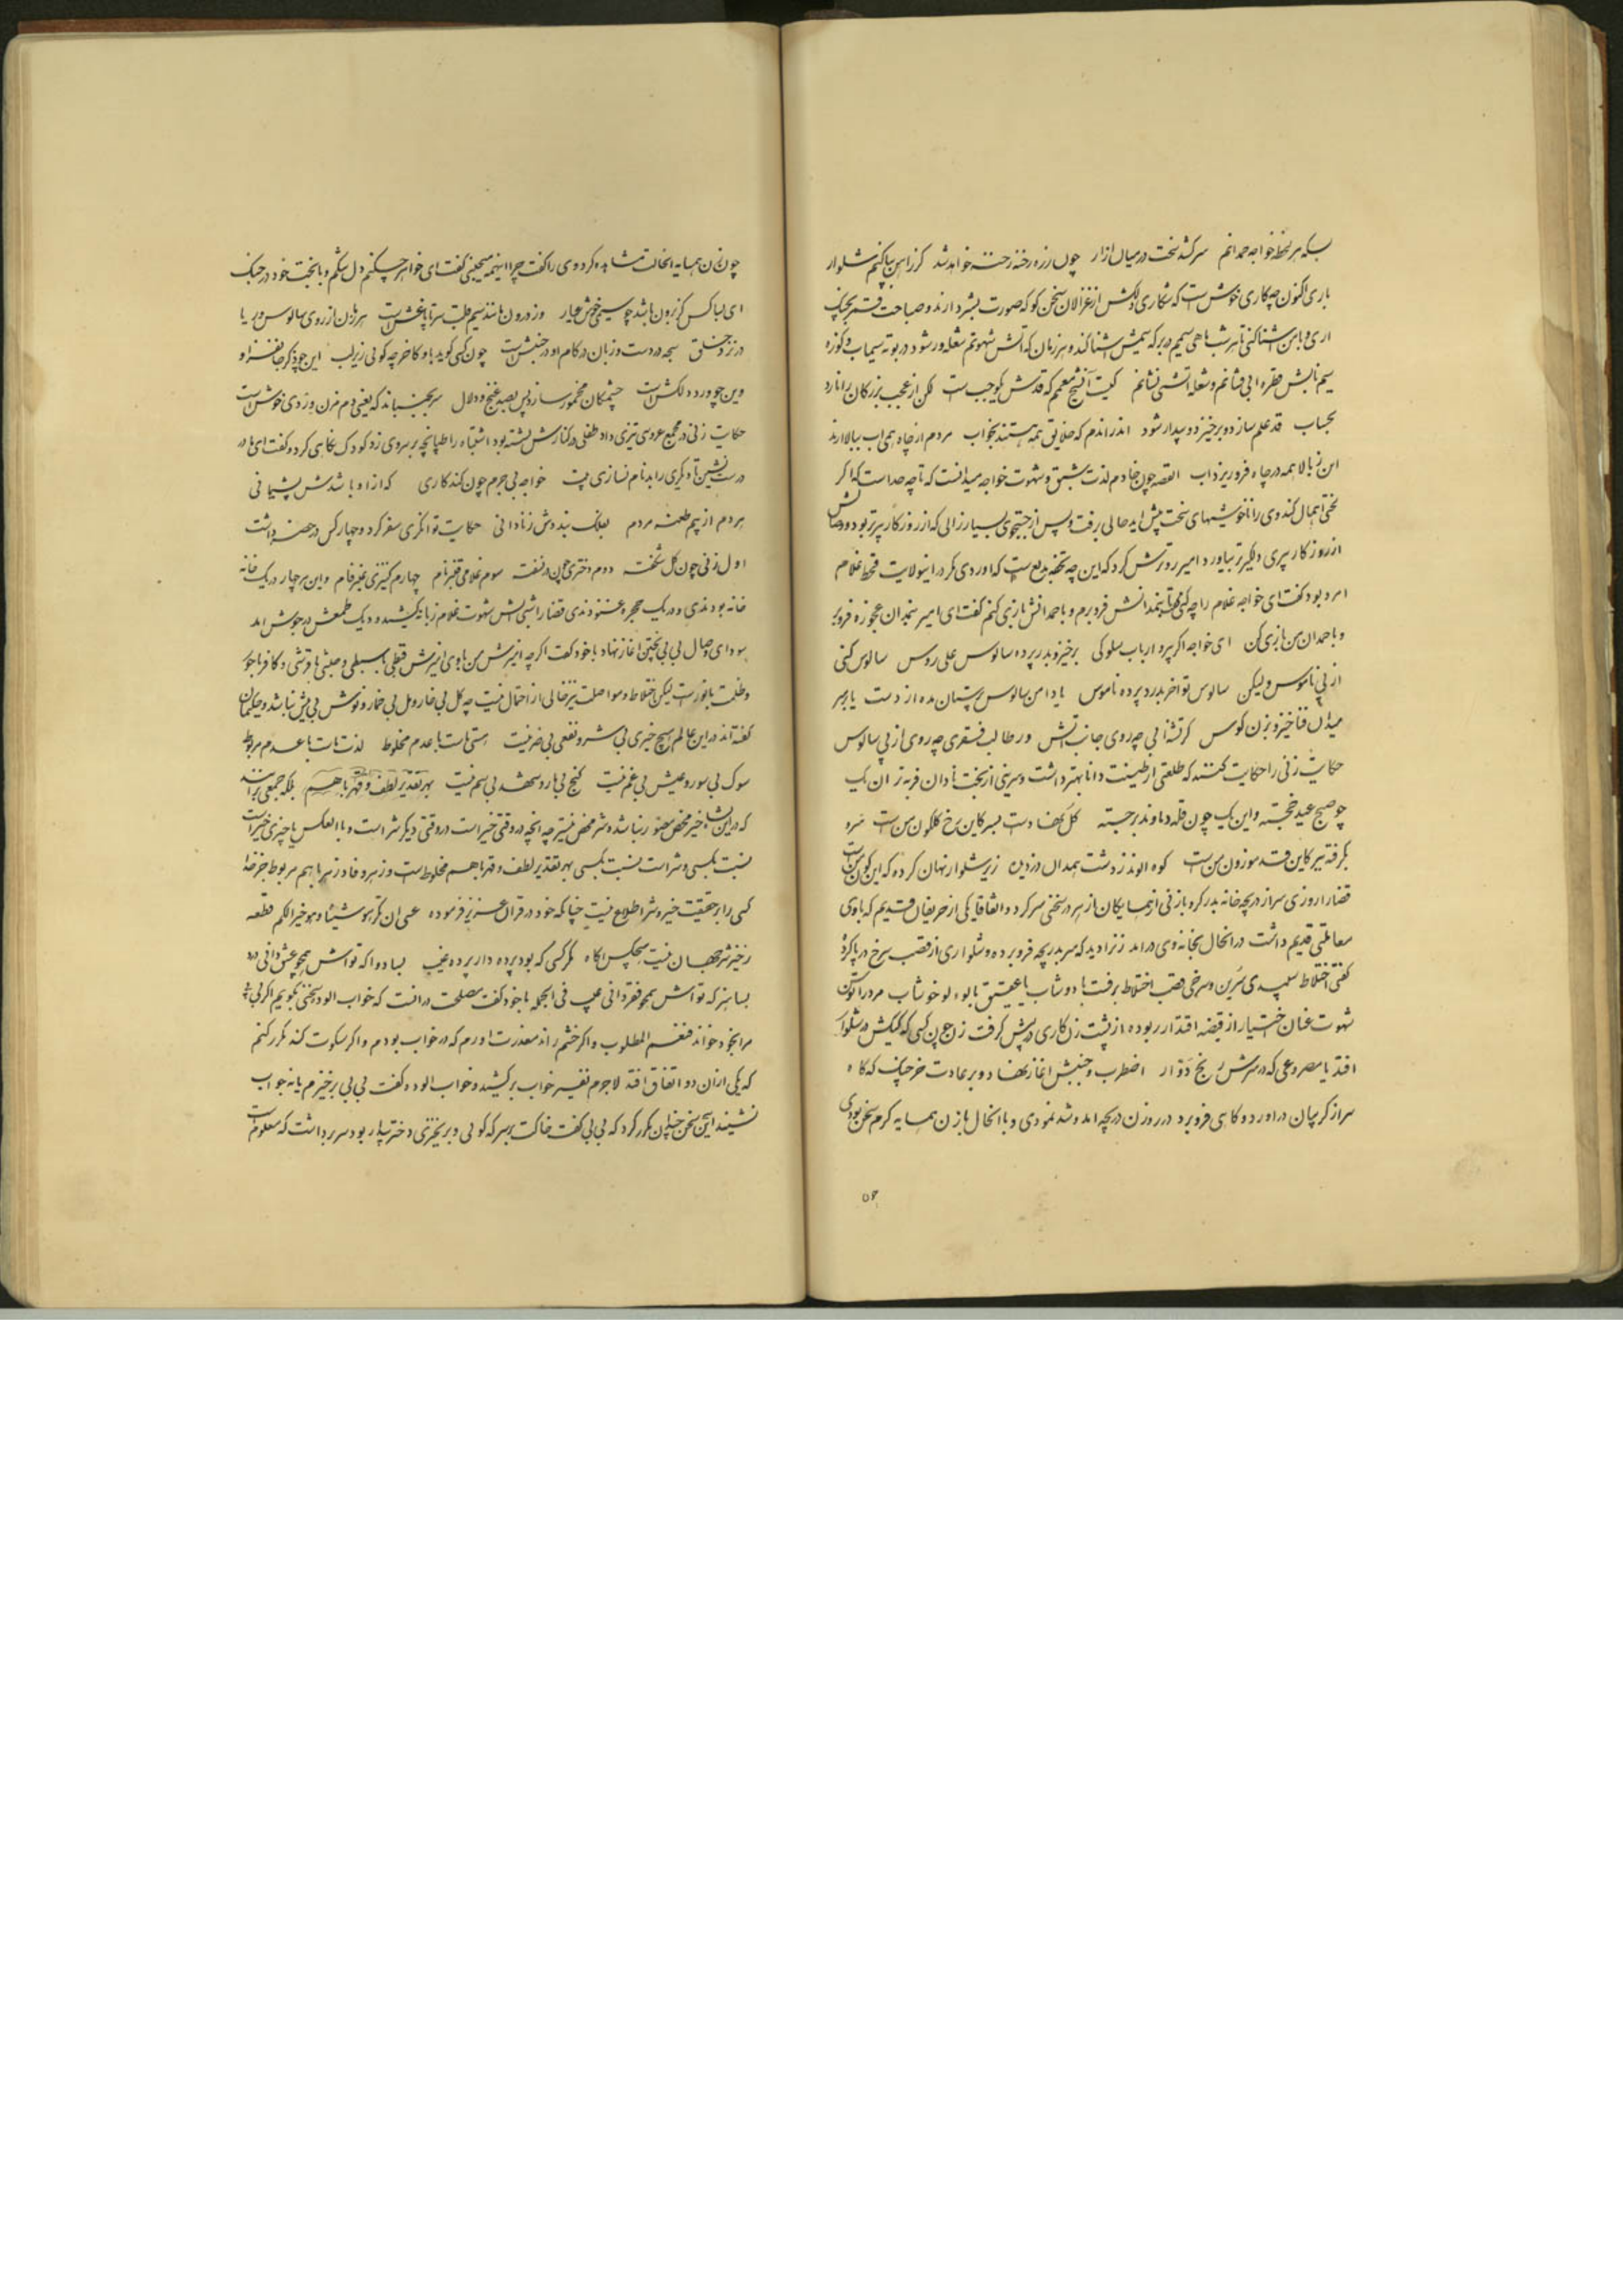 بسکه هر لحظه خواجه حمدانم سرکشد سخت در میان ازار چون رزه رخنه رخنه خواهد شد کر زاهن بپا کنم شلوار
باری اکنون چکاری خوش است که شکاری دلکش از غزالان سخن کو که صورت بشر دارند و صباحت قمر بچنک
اری و با من شناکنی تا هر شب ماهی سیمم در برکه سمیش شنا کند و هر زمان که اتش شهوتم شعله ور شود در بوته سیماب
سیم نابش قطره ابی فشانم و شعله اتشی نشانم که قدش یکوجب است لکن از عجب بزرکان را نارد
بحساب قد علم سازد و برخیزد و بیدار شود اندر اندم که خلایق همه هستند بخواب مردم از چاه همی اب ببالا ارند
این ز بالا همه در چاه فرو ریزد اب القصه چون خادم لذت شبق و شهوت خواجه میدانست که تا چه حد است که اکر
لختی اهمال کند وی را ناخوشیهای سخت پیش اید حالی برفت و پس از جستجوی بسیار زالی که از روزکار پیرتر بود و
از روزکار پیری دلکیرتر بیاورد امیر رو ترش کرد که این چه تحفه بدیع است که اوردی مکر در اینولایت قحط غلام
امرد بود کفت ای خواجه غلام را چه کنی کفت تا بنمدانش فرو برم و با حمدانش بازی کنم کفت ای امیر عجوزه فرو بر
و با حمدان من بازی کن ای خواجه اکر پیرو ارباب سلوکی برخیز و بدر پرده سالوس علی روس سالوس کنی
از پی ناموس ولیکن سالوس تو اخر بدرد پرده ناموس یا دامن سالوس پرستان مده از دست یا بر سر
میدان فنا خیز و بزن کوس کر تشنه ابی چه روی جانب اتش ور طالب فقری چه روی از پی سالوس
حکایت زنی را حکایت کنند که طلعتی از طینت دانا بهتر داشت و سرینی از بخت نادان فربه تر ان یک
چو صبح عید خجسته و این یک چون قله دماوند برجسته کل کف دست کاین رخ کلکون من است سرو
کاین قد موزون من است کوه الوند ز دشت همدان دزدیده زیر شلوار نهان کرده که این کون من است
قضا را روزی سر از دریچه خانه بدر کرد و با زنی از همسایکان از هر در سخنی سر کرد و اتفاقا یکی از حریفان قدیم که با وی
معاملتی قدیم داشت در انحال بخانه وی در امد زنرا دید که سر بدریچه فرو برده و شلواری از قصب سرخ در پا کرده
کفتی اختلاط سپیدی سرین و سرخی قصب اختلاط برفست با دوشاب یا عقیق با لولو خوشاب مرد را
شهوت عنان اختیار از قبضه اقتدار ربوده از پشت زن کاری در پیش کرفت زن چون کسی که کیکش در شلوار
افتد یا مصروعی که در سرش رنج دوار اضطرب و جنبش اغاز نهاد و بر عادت خرچنک که کاه
سر از کریبان در اورد و کاهی فرو برد در روزن دریچه امد و شد نمودی و با انحال با زن همسایه کرم سخن بودی
چون
چون زن همسایه انحالت مشاهده کرد وی را کفت چرا اینهمه میجنبی کفت ای خواهر چکنم دل تنکم و با بخت خود در جنک
ای بسا کس کز برون باشد چو سیمی خوش عیار وز درون مانند سیم قلب سر تا پا غش است هر زمان از روی سالوس و ریا
در نزد خلق سبحه در دست و زبان در کام او در جنبش است چون کسی کوید باو کاخر چه کوئی زیر لب این چه ذکر جانفزا و
وین چه ورد دلکش است چشمکان مخمور سازد پس بصد غنج و دلال سر بجنباند که یعنی دم مزن وردی خوش است
حکایت زنی در مجمع عروسی تیزی داد طفلی در کنارش نشسته بود اشتباه را طپانچه بر سر وی زد کودک نکاهی کرد و کفت ای مادر
درست بنشین تا دیکری را بدنام نسازی خواجه بی جرم چون کند کاری که از او باشدش پشیمانی
هر دم از بیم طعنه مردم بغلک بنددش ز نادانی حکایت توانکری سفر کرد و چهار کس در حضر داشت
اول زنی چون کل شکفته دوم دختری چون در نسفته سوم غلامی قنبر نام چهارم کنیزی عنبر فام و این هر چار در یک خانه
خانه بودندی و در یک حجره غنودندی قضا را شبی اتش شهوت غلام زبانه کشید و دیک طمعش در جوش امد
سودای وصال بی بی پختن اغاز نهاد با خود کفت اکر چه امیزش من با وی امیزش قبطی با سبطی و حبشی با قرشی و کافر با حور
و ظلمت با نور است لیکن اختلاط و مواصلت نیز خالی از احتمال نیست چه کل بی خار و مل بی خمار و نوش بی نیش نباشد و حکیمان
کفته اند در این عالم هیچ خیری بی شر و نفعی بی ضر نیست هستی است با عدم مخلوط لذت است با عدم مربوط
سوک بی سور و عیش بی غم نیست کنج بی مار و شهد بی سم نیست بهر تقدیر لطف و قهر با هم بلکه جمعی برانند
که در این نشاه خیر محض متصور نباشد و شر محض نیز چه انچه در وقتی خیر است در وقتی دیکر شر است و با العکس یا چیزی خیر است
نسبت بکسی و شر است نسبت بکسی بهر تقدیر لطف و قهر با هم مخلوط است و زهر و فاد زهر با هم مربوط جز خدا
کسی را بر حقیقت خیر و شر اطلاع نیست چنانکه خود در قران عزیز فرموده عسی ان تکرهوا شیئا و هو خیر الکم قطعه
ز خیر و شر جهان نیست هیچکس اکاه مکر کسی که بود پرده دار پرده غیب بسا دوا که تواش همچو عیش دانی درد
بسا هنر که تواش همچو فقر دانی عیب فی الجمله با خود کفت مصلحت در انست که خواب الود سخنی بکویم اکر بی بی
مرا بخود خواند فنعم المطلوب و اکر خشم راند معذرت اورم که در خواب بودم و اکر سکوت کند مکرر کنم
که یکی از ان دو اتفاق افتد لاجرم نفیر خواب برکشید و خواب الوده کفت بی بی برخیزم یا نه جواب
نشیند این سخن چندان مکرر کرد که بی بی کفت خاکت بر سر که کوئی و برنخیزی دختر بیدار بود سر برداشت که معلوم است